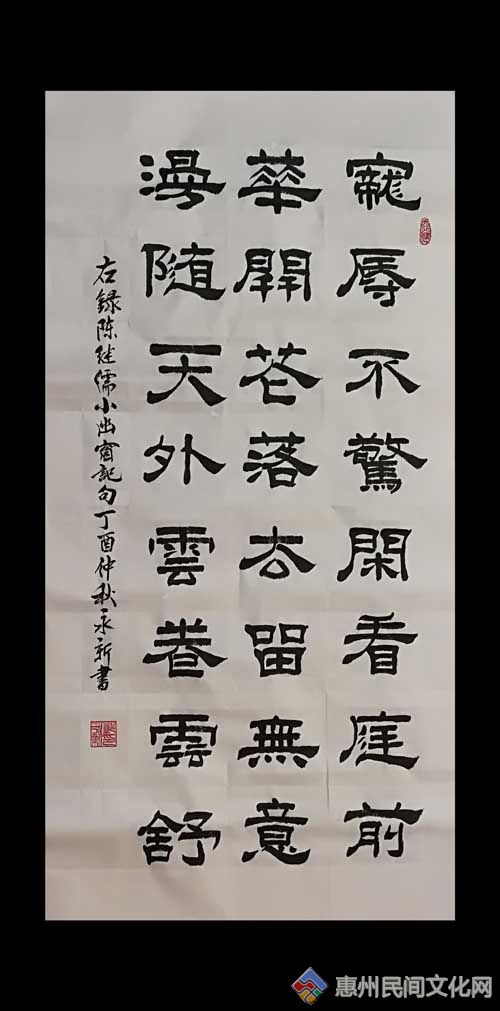 寵辱不驚閑看庭前
華開花落去留無意
漫随天外雲卷雲舒
右録陈继儒小幽窗記句丁酉仲秋永新書
惠州民间文化网